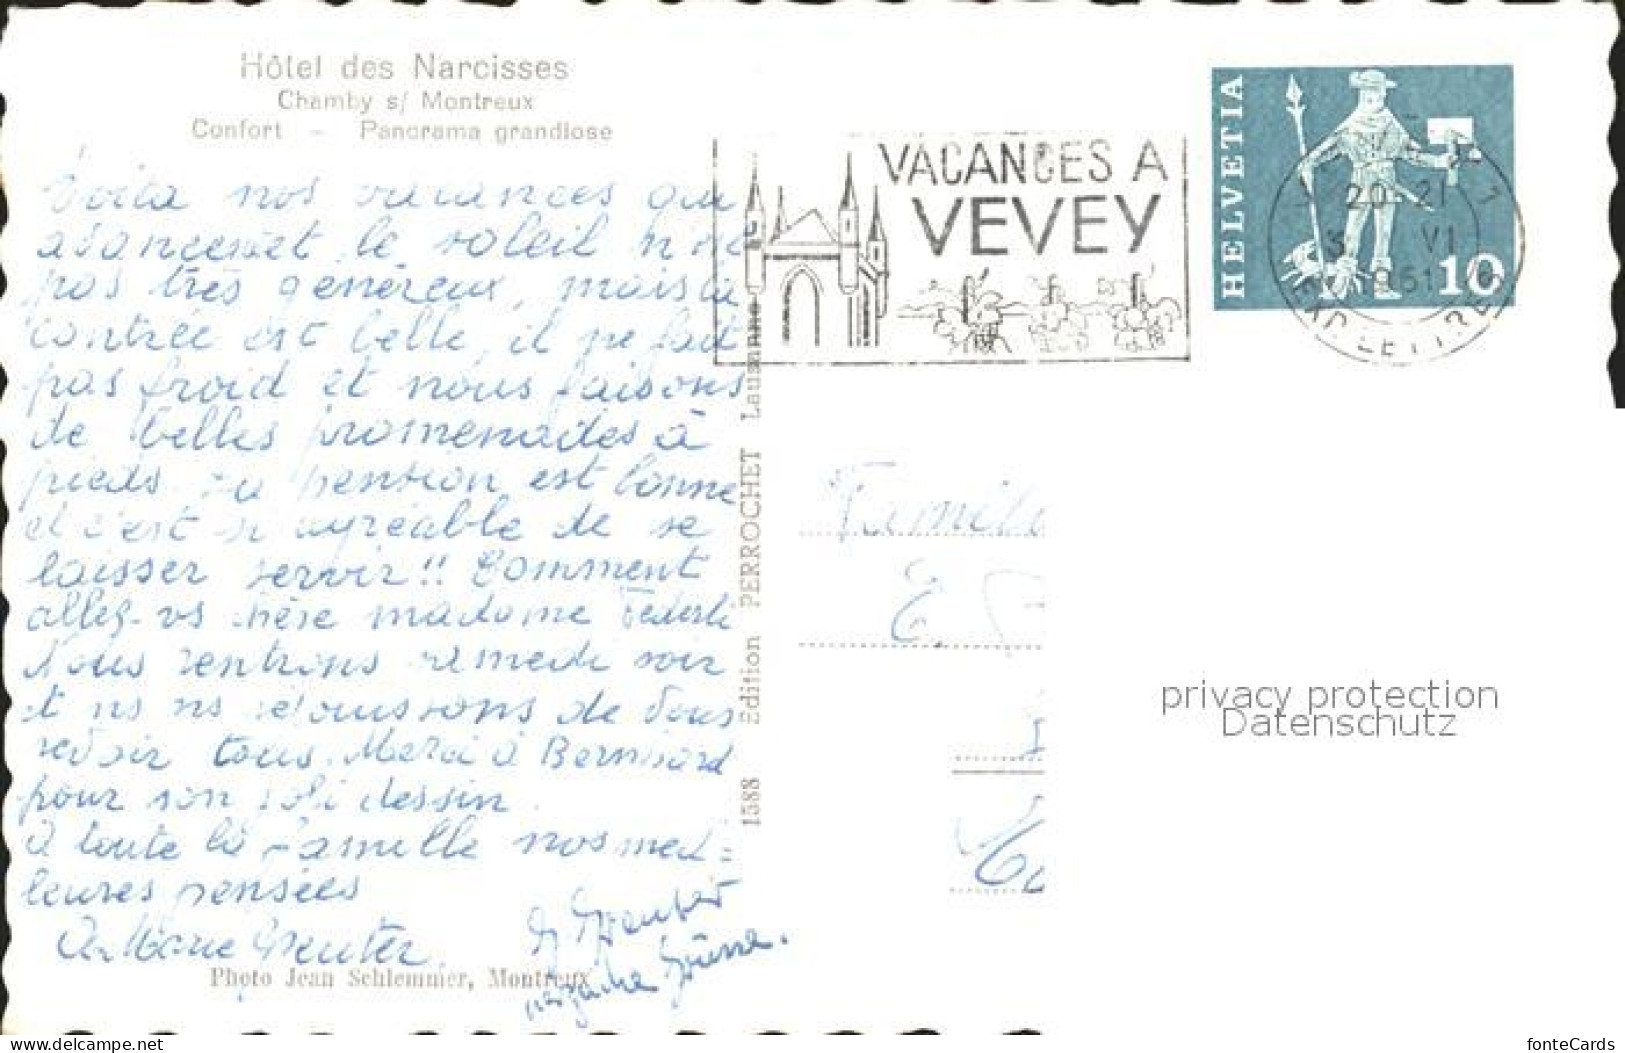 Hôtel des Narcisses
Chamby s/ Montreux
Confort – Panorama grandiose
Voila nos vacances qui
avancent, le soleil n'est
pas très généreux, mais la
contrée est belle, il ne fait
pas froid et nous faisons
de belles promenades à
pieds. La pension est bonne
et c'est si agréable de se
laisser servir!! Comment
allez-vs chère madame
Nous rentrons samedi soir
et ns ns réjouissons de vous
revoir tous. Merci à Bernhard
pour son joli dessin.
à toute la famille nos meil=
leures pensées
Marie
Photo Jean Schlemmer, Montreux
1588 Edition PERROCHET Lausanne
VACANCES A
VEVEY
HELVETIA
10
20-21
VI
Famil
E.
privacy protection
Datenschutz
www.delcampe.net
fonteCards